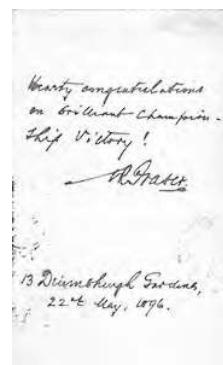 Hearty congratulations
on brilliant Champion-
ship Victory!
Fraser.
13 Drumsheugh Gardens,
22nd May, 1896.